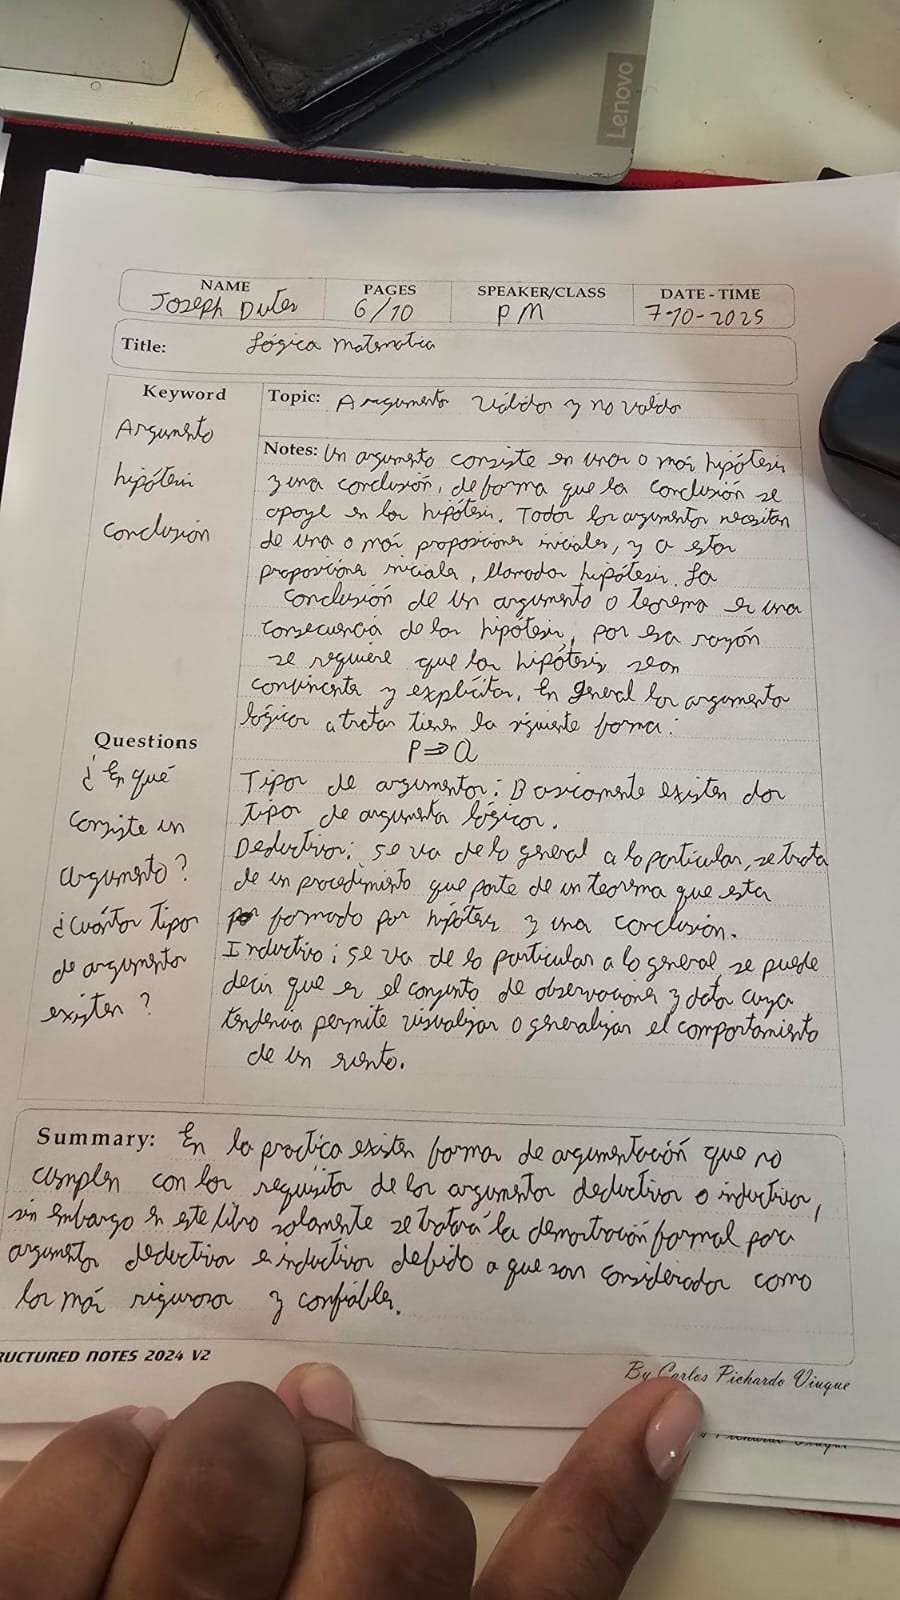 Lenovo
NAME PAGES SPEAKER/CLASS DATE - TIME
Joseph 6/10 PM 7-10-2025
Title: Lógica Matematica
Keyword
Argumento
hipótesis
Conclusión
Topic: Argumento válidos y no valido
Notes: Un argumento consiste en unas o más hipótesis
y una conclusión, de forma que la conclusión se
apoye en las hipótesis. Todos los argumentos necesitan
de una o más proposiciones iniciales, y a estas
proposiciones iniciales, llamadas hipótesis. La
conclusión de un argumento o teorema es una
consecuencia de las hipótesis, por esa razón
se requiere que las hipótesis sean
convincentes y explícitas. En general los argumentos
lógicos a tratar tienen la siguiente forma:
P ⇒ Q
Tipos de argumentos: Basicamente existen dos
tipos de argumentos lógicos.
Deductivos: se va de lo general a lo particular, se trata
de un procedimiento que parte de un teorema que esta
formado por hipótesis y una conclusión.
Inductivo: se va de lo particular a lo general, se puede
decir que es el conjunto de observaciones y datos cuya
tendencia permite visualizar o generalizar el comportamiento
de un
Questions
¿En qué
consiste un
argumento?
¿Cuántos tipos
de argumentos
existen?
Summary: En la practica existen formas de argumentación que no
cumplen con los requisitos de los argumentos deductivos o inductivos,
sin embargo en este libro solamente se tratará la demostración formal para
argumentos deductivos e inductivos debido a que son considerados como
los más rigurosos y confiables.
RUCTURED NOTES 2024 V2
By Carlos Pichardo Viuque